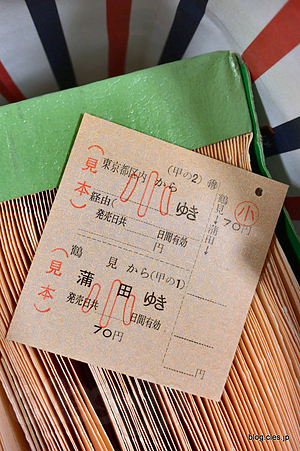 (見本)
東京都区内 から (甲の2)
経由( ゆき
発売日共 日間有効
円
鶴見 → 蒲田 →
小
70円
(見本)
鶴見 から(甲の1)
蒲田 ゆき
発売日共 日間有効
70円
円
blog.cles.jp